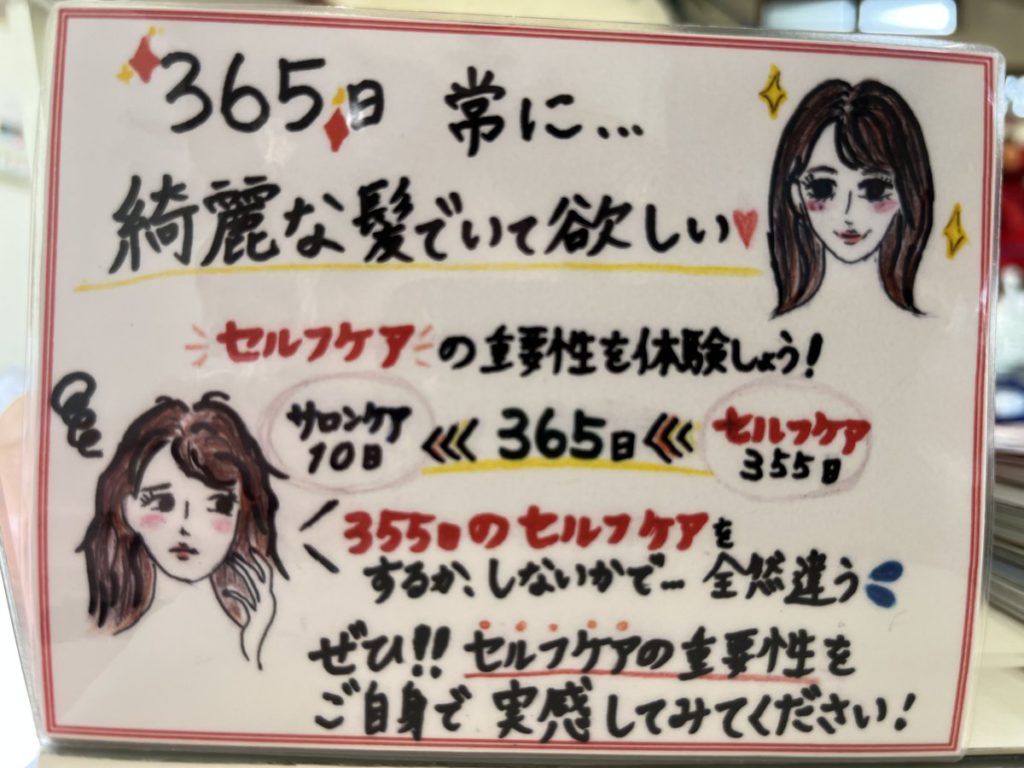 365日 常に...
綺麗な髪でいて欲しい
セルフケアの重要性を体験しよう!
サロンケア 365日 セルフケア
10日 355日
355日のセルフケアを
するか、しないかで… 全然違う
ぜひ!! セルフケアの重要性を
ご自身で実感してみてください!